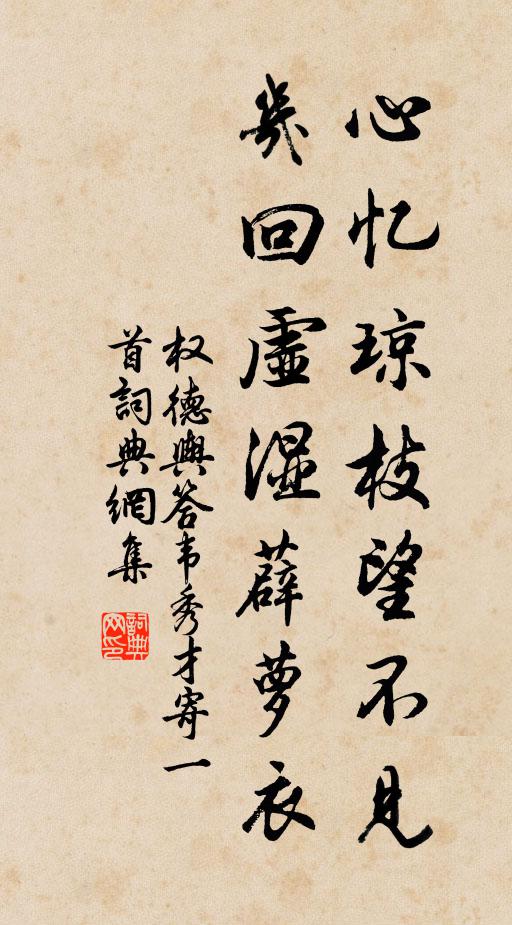 心忆琼枝望不见
几回虚湿薜萝衣
权德舆答韦秀才寄一
首词典网集
词典网印